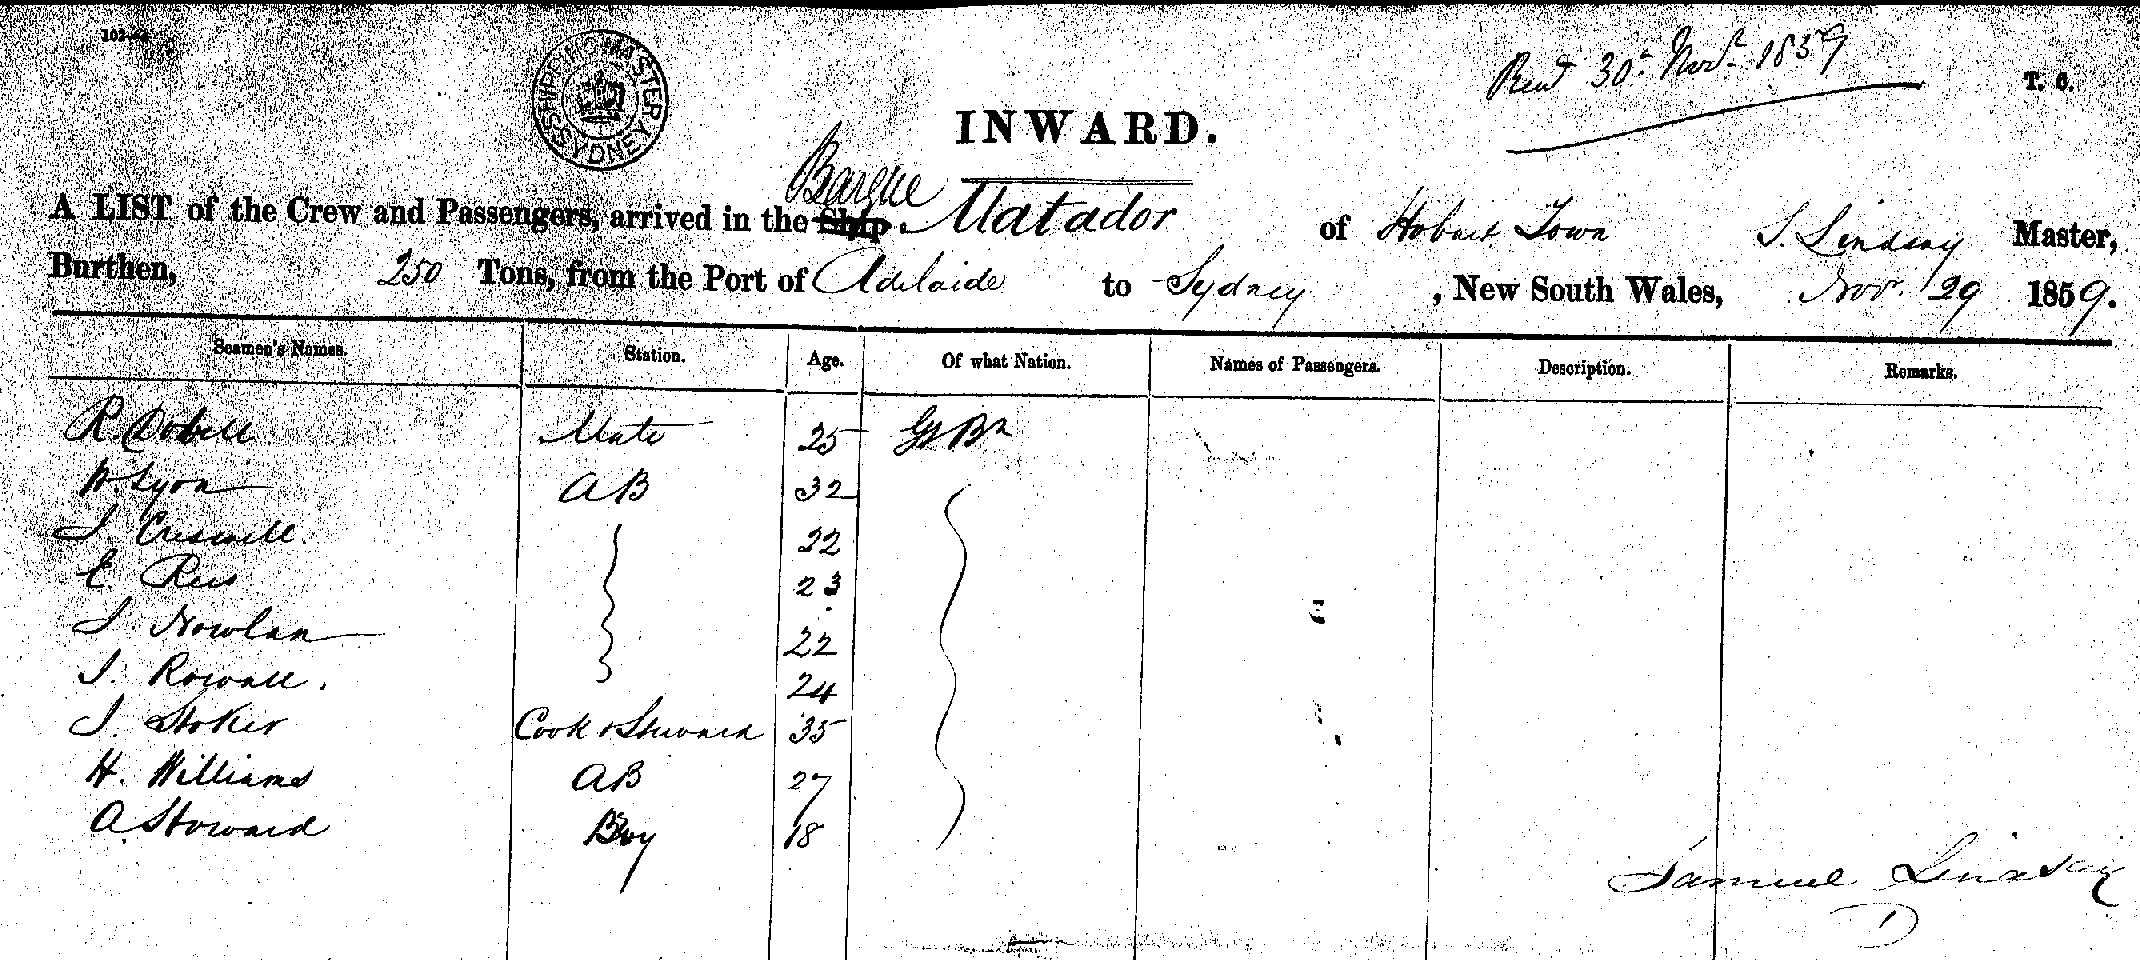 SHIPPING MASTER SYDNEY
Recd 30th Novr 1859
T. 6.
INWARD.
Barque
A LIST of the Crew and Passengers, arrived in the Ship. Matador of Hobart Town S. Lindsay Master,
Burthen, 250 Tons, from the Port of Adelaide to Sydney, New South Wales, Novr. 29 1859.
Seamen's Names. Station. Age. Of what Nation. Names of Passengers. Description. Remarks.
R Dobell Mate 25 Gt Bn
W. Lyon AB 32
J. Creswell 22
E Rees 23
J. Nowlan 22
J. 24
J. Stoker Cook & Steward 35
H. Williams AB 27
A. Howard Boy 18
Samuel Lindsay